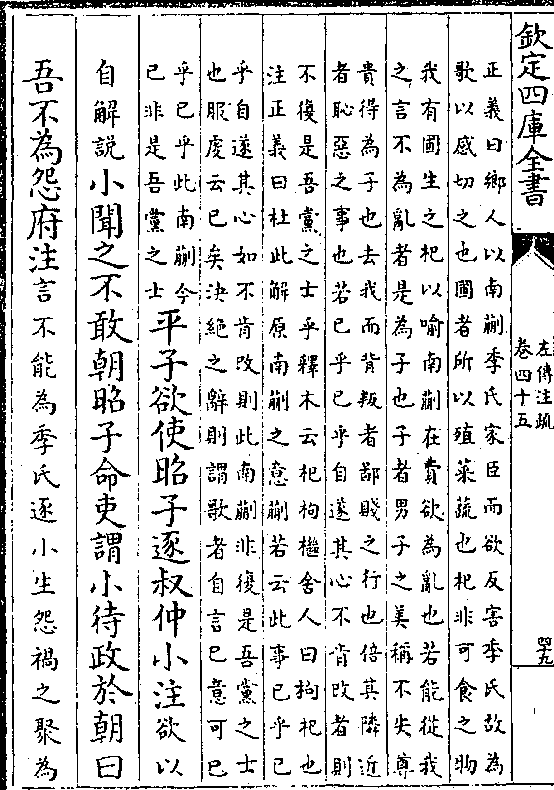 欽定四庫全書
左傳注疏
卷四十五
四十九
正義曰鄉人以南蒯季氏家臣而欲反害季氏故為
歌以感切之也圃者所以殖菜蔬也杞非可食之物
我有圃生之杞以喻南蒯在費欲為亂也若能從我
之言不為亂者是為子也子者男子之美稱不失尊
貴得為子也去我而背叛者鄙賤之行也倍其隣近
者恥惡之事也若已乎已乎自遂其心不肯改者則
不復是吾黨之士乎釋木云杞枸檵舍人曰枸杞也
注正義曰杜此解原南蒯之意蒯若云此事已乎已
乎自遂其心如不肯改則此南蒯非復是吾黨之士
也服虔云已矣決絶之辭則謂歌者自言已意可已
乎已乎此南蒯今
已非是吾黨之士
平子欲使昭子逐叔仲小注欲以
自解説小聞之不敢朝昭子命吏謂小待政於朝曰
吾不為怨府注言不能為季氏逐小生怨禍之聚為